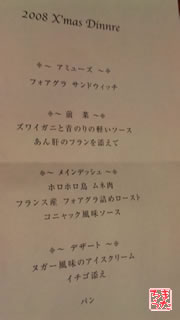 2008 X'mas Dinnre
※～ アミューズ ～※
フォアグラ サンドウィッチ
※～ 前 菜 ～※
ズワイガニと青のりの軽いソース
あん肝のフランを添えて
※～ メインデッシュ ～※
ホロホロ鳥 ムネ肉
フランス産 フォアグラ詰めロースト
コニャック風味ソース
※～ デザート ～※
ヌガー風味のアイスクリーム
イチゴ添え
パン